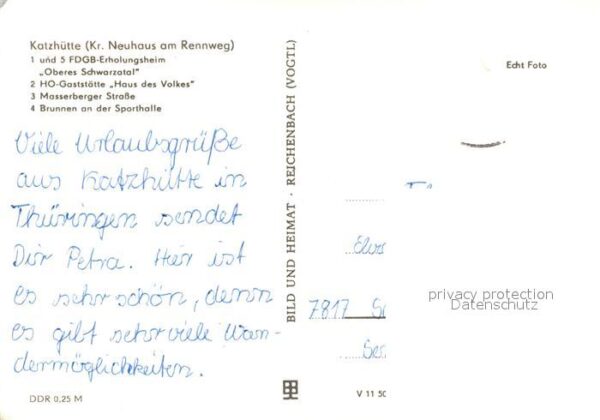 Katzhütte (Kr. Neuhaus am Rennweg)
1 und 5 FDGB-Erholungsheim
„Oberes Schwarzatal“
2 HO-Gaststätte „Haus des Volkes“
3 Masserberger Straße
4 Brunnen an der Sporthalle
Viele Urlaubsgrüße
aus Katzhütte in
Thüringen sendet
Dir Petra. Hier ist
es sehr schön, denn
es gibt sehr viele Wan-
dermöglichkeiten.
DDR 0,25 M
BILD UND HEIMAT · REICHENBACH (VOGTL)
Echt Foto
7817
privacy protection
Datenschutz
V 11 50